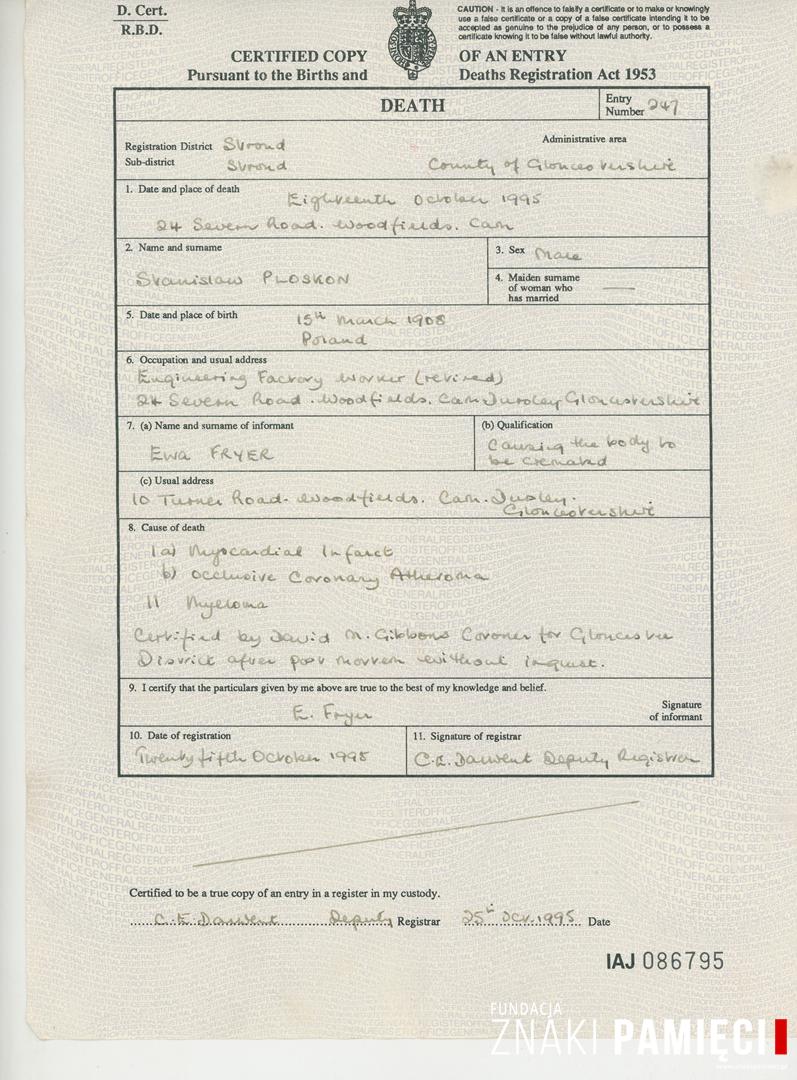 D. Cert.
R.B.D.
CAUTION - It is an offence to falsify a certificate or to make or knowingly
use a false certificate or a copy of a false certificate intending it to be
accepted as genuine to the prejudice of any person, or to possess a
certificate knowing it to be false without lawful authority.
CERTIFIED COPY OF AN ENTRY
Pursuant to the Births and Deaths Registration Act 1953
DEATH
Entry
Number 247
Registration District Stroud
Administrative area
Sub-district Stroud
County of Gloucestershire
1. Date and place of death
Eighteenth October 1995
24 Severn Road. Woodfields. Cam
2. Name and surname
Stanislaw PLOSKON
3. Sex Male
4. Maiden surname
of woman who
has married
5. Date and place of birth
15th March 1908
Poland
6. Occupation and usual address
Engineering Factory Worker (retired)
24 Severn Road. Woodfields. Cam Dursley Gloucestershire
7. (a) Name and surname of informant
Ewa FRYER
(b) Qualification
Causing the body to
be cremated
(c) Usual address
10 Turner Road. Woodfields. Cam. Dursley.
Gloucestershire
8. Cause of death
1a) Myocardial Infarct
b) Occlusive Coronary Atheroma
11 Myeloma
Certified by David M. Gibbons Coroner for Gloucester
District after post mortem without inquest.
9. I certify that the particulars given by me above are true to the best of my knowledge and belief.
E. Fryer
Signature
of informant
10. Date of registration
Twenty fifth October 1995
11. Signature of registrar
C.E. Darwent Deputy Registrar
Certified to be a true copy of an entry in a register in my custody.
C.E. Darwent Deputy Registrar 25th Oct. 1995 Date
IAJ 086795
FUNDACJA
ZNAKI PAMIĘCI